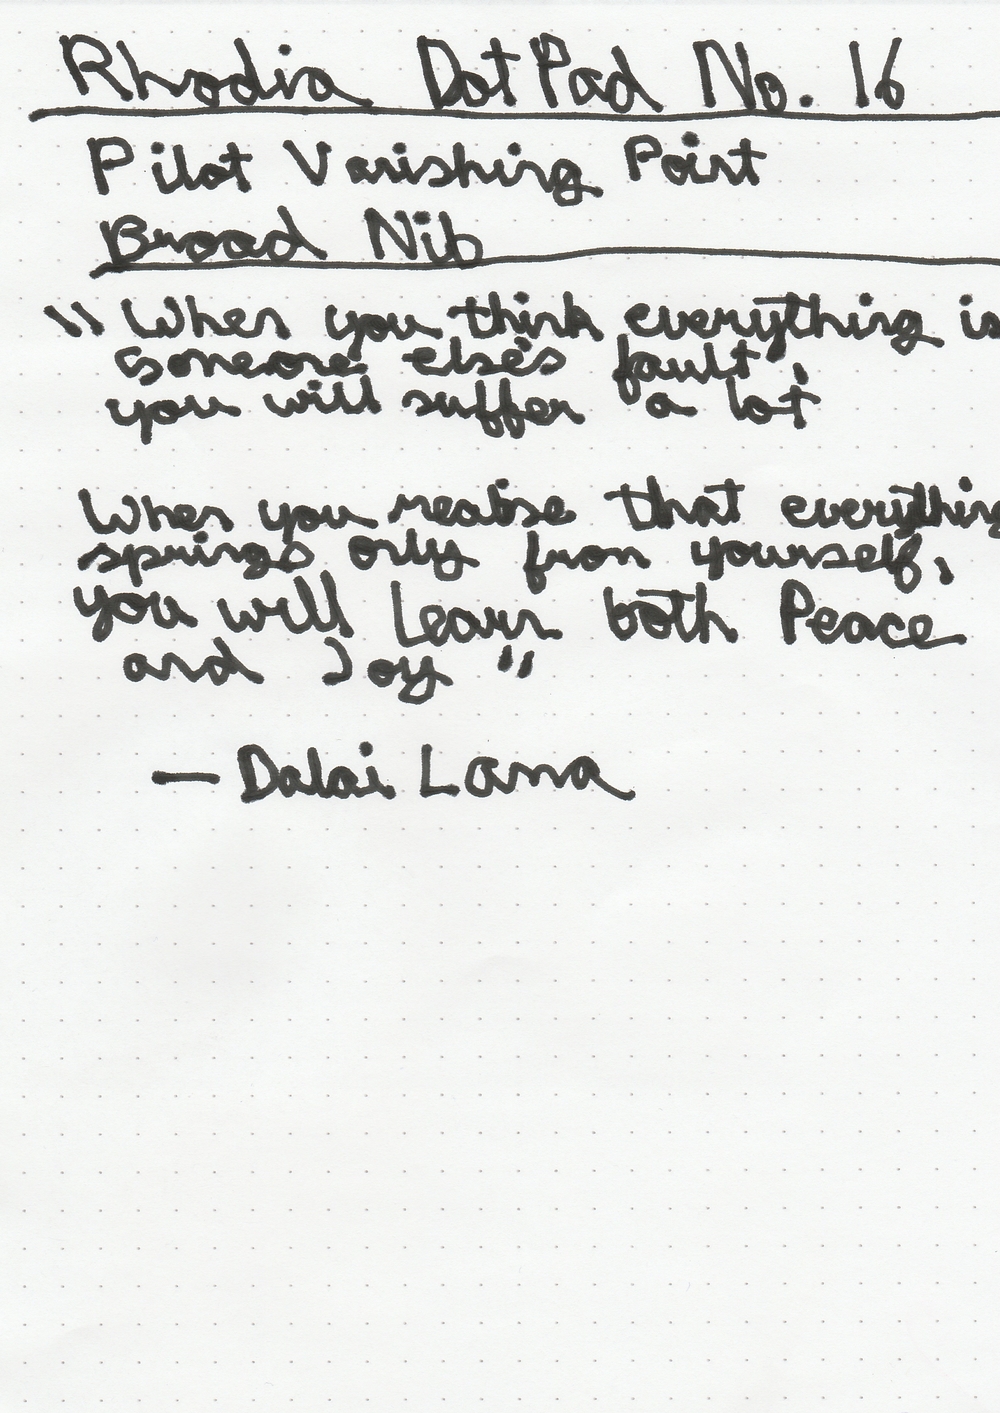 Rhodia Dot Pad No. 16
Pilot Vanishing Point
Broad Nib
"When you think everything is
someone else's fault,
you will suffer a lot
When you realise that everything
springs only from yourself,
you will Learn both Peace
and Joy"
— Dalai Lama